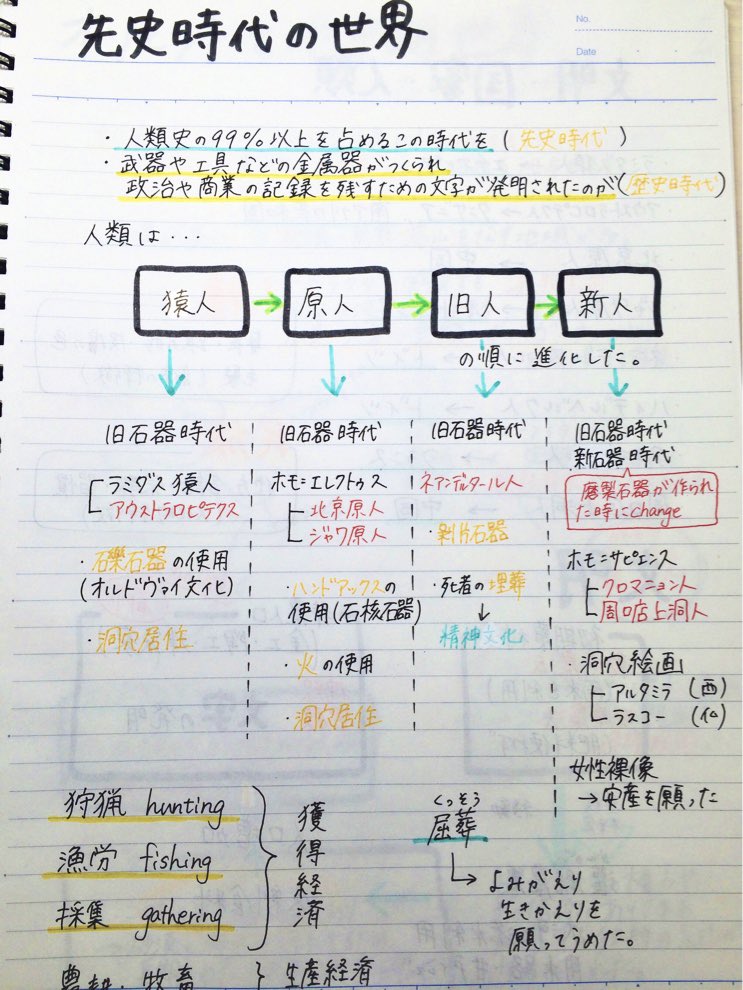 先史時代の世界
No.
Date
・人類史の99%以上を占めるこの時代を(先史時代)
・武器や工具などの金属器がつくられ
政治や商業の記録を残すための文字が発明されたのが(歴史時代)
人類は・・・
猿人 → 原人 → 旧人 → 新人
の順に進化した。
旧石器時代
ラミダス猿人
アウストラロピテクス
・石礫石器の使用
(オルドヴァイ文化)
・洞穴居住
旧石器時代
ホモ=エレクトゥス
北京原人
ジャワ原人
・ハンドアックスの
使用(石核石器)
・火の使用
・洞穴居住
旧石器時代
ネアンデルタール人
・剥片石器
・死者の埋葬
↓
精神文化
旧石器時代
新石器時代
磨製石器が作られ
た時にchange
ホモ=サピエンス
クロマニョン人
周口店上洞人
・洞穴絵画
アルタミラ (西)
ラスコー (仏)
女性裸像
→安産を願った
狩猟 hunting
漁労 fishing
採集 gathering
獲得経済
農耕・牧畜 } 生産経済
くっそう
屈葬
よみがえり
生きかえりを
願ってうめた。